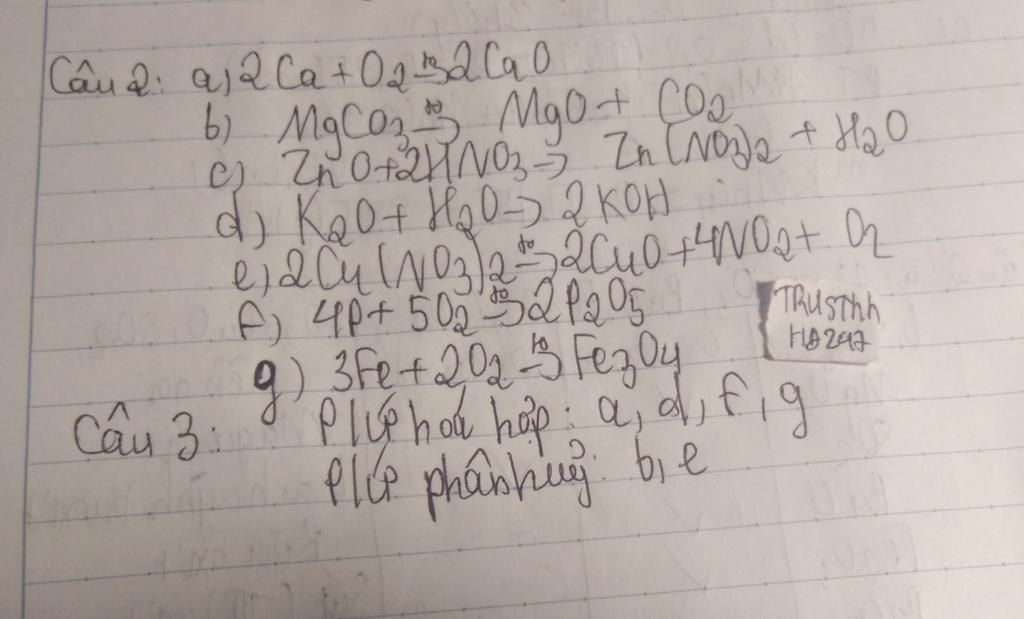 Câu 2: a) 2Ca + O2 t°→ 2CaO
b) MgCO3 t°→ MgO + CO2
c) ZnO + 2HNO3 → Zn(NO3)2 + H2O
d) K2O + H2O → 2KOH
e) 2Cu(NO3)2 t°→ 2CuO + 4NO2 + O2
f) 4P + 5O2 t°→ 2P2O5
g) 3Fe + 2O2 t°→ Fe3O4
TRUSThh
HB247
Câu 3: hoá hợp: a, d, f, g
phân huỷ: b, e